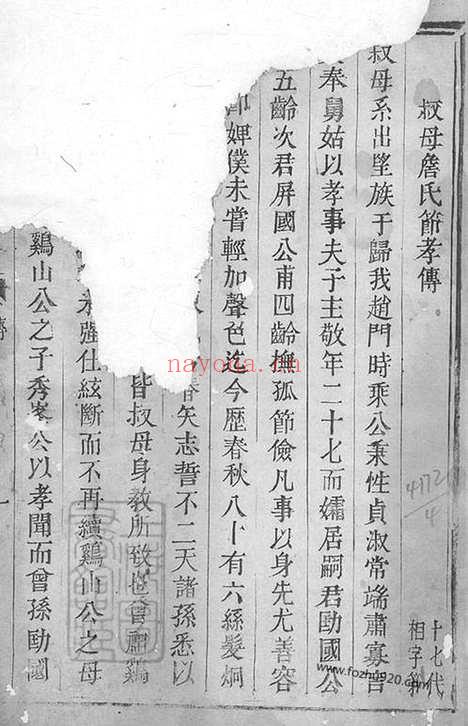 叔母詹氏節孝傳
叔母系出望族于歸我趙門時乘公秉性貞淑常端肅寡言
奉舅姑以孝事夫子主敬年二十七而孀居嗣君劻國公
五齡次君屏國公甫四齡撫孤節儉凡事以身先尤善容
婢僕未嘗輕加聲色迄今歷春秋八十有六絲髮炯
矢志誓不二天諸孫悉以
皆叔母身教所致也曾
強仕絃斷而不再續鷄山公之母
鷄山公之子秀峯公以孝聞而曾孫劻國
傳
一
十七代
相字
4172
4
nayona.cn
www.fozhu920.com